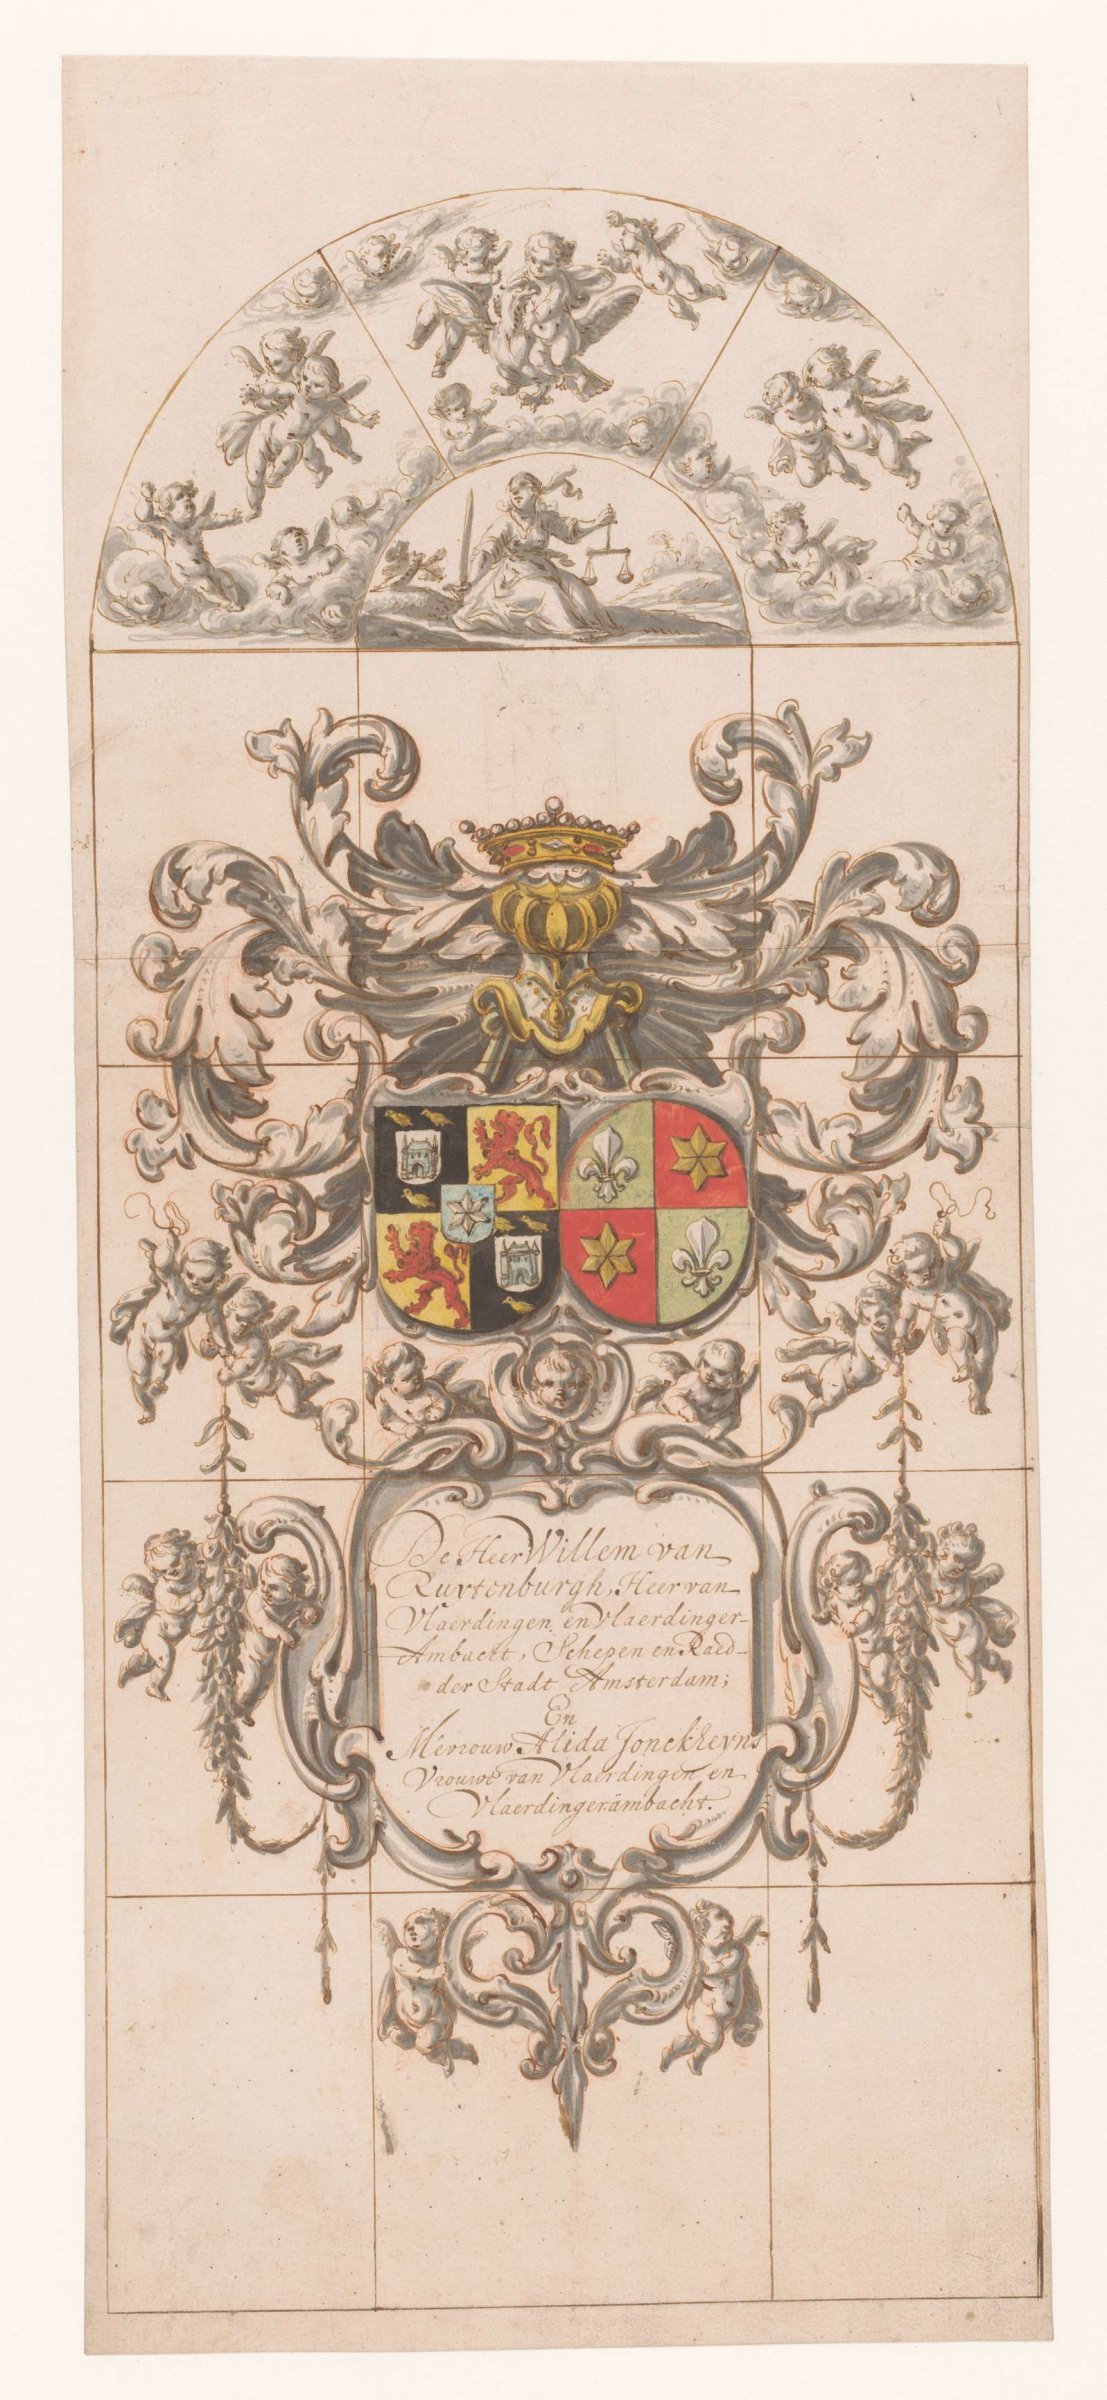 De Heer Willem van
Ruytenburgh, Heer van
Vlaerdingen en Vlaerdinger-
Ambacht, Schepen en Raed-
der Stadt Amsterdam;
En
Mevrouw Alida Jonckheyns
Vrouwe van Vlaerdingen en
Vlaerdingerambacht.